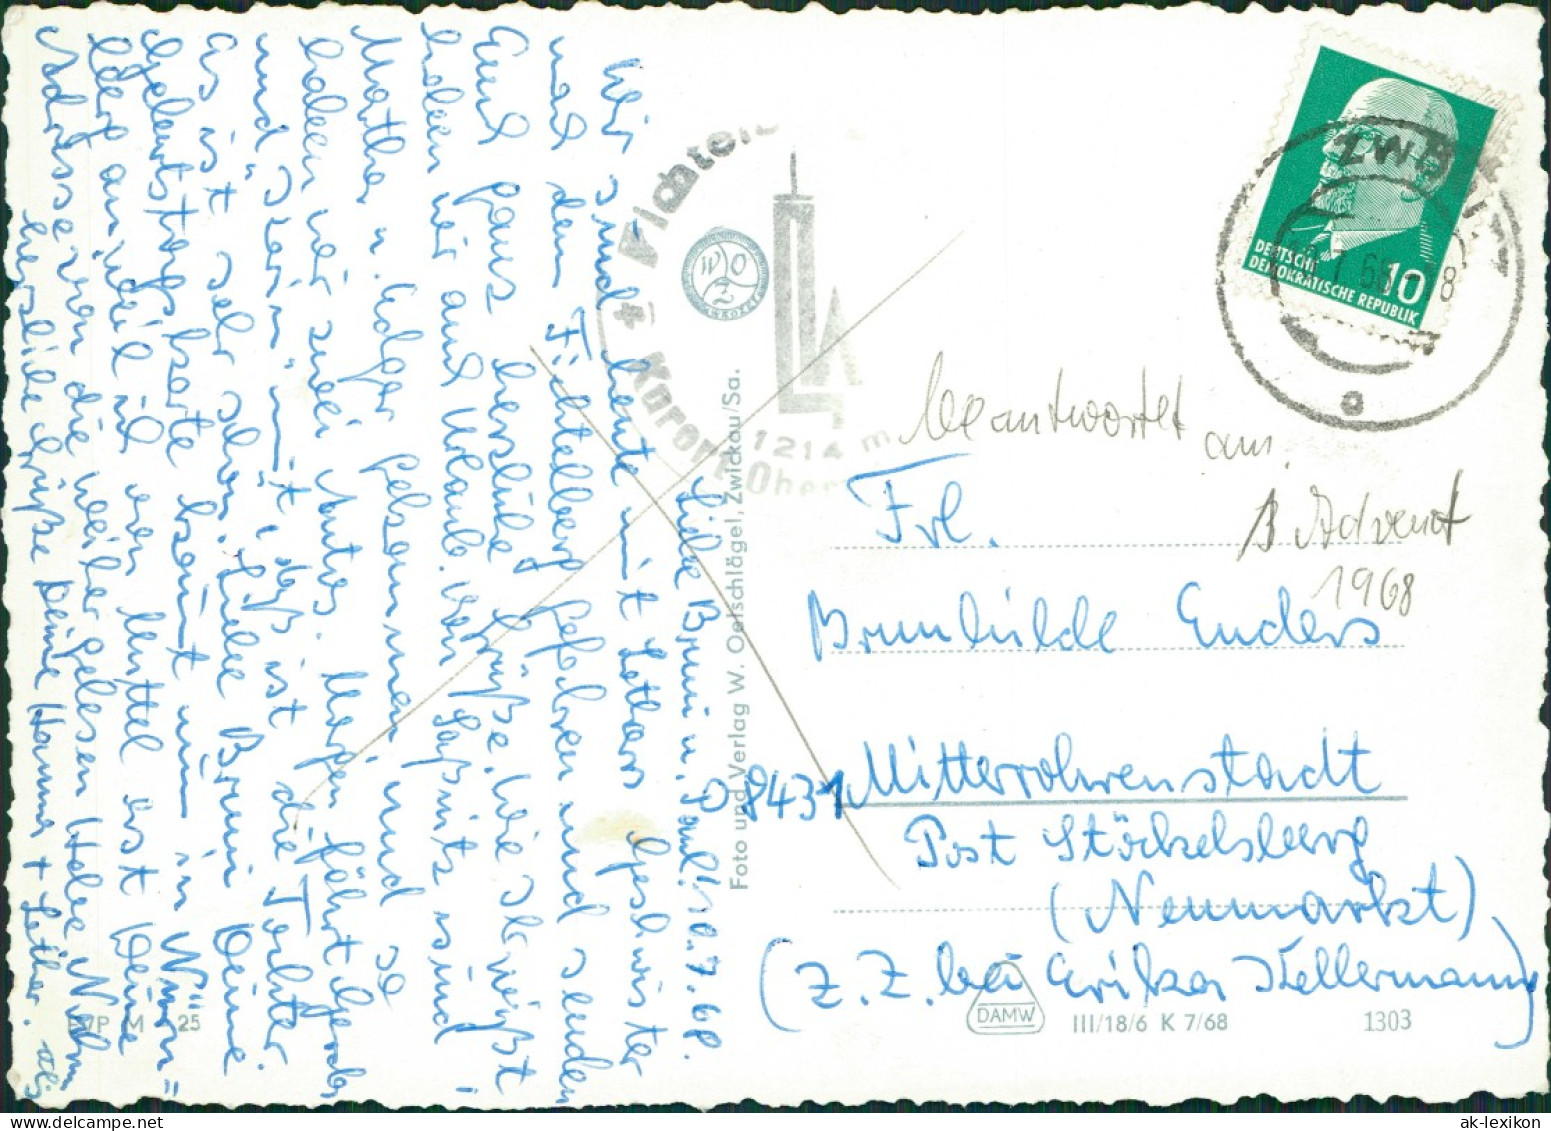 Liebe Brunni u. Paul! 10.7.68.
Wir sind heute mit Lothars Geschwister
und dem Fichtelberg gefahren und senden
Euch ganz herzliche Grüße. Wie Ihr wißt
haben wir auch Urlaub. Von Saßnitz sind
Martha u. Edgar gekommen und so
haben wir zwei Autos. Morgen fährt Gerda
und mit, daß ist die Tochter
Es ist sehr schön. Liebe Brunni Deine
Geburtstagskarte kommt nun in Nürn=
berg an weil ich von Muttel erst Deine
Adresse von die weiter gelesen habe. Nehm
herzliche Grüße Deine Hanna + Lothar.
Fichtel
Kurort Ober
1214 m
WOZ
Foto und Verlag W. Oelschlägel, Zwickau/Sa.
ZWÖNITZ
7.68
18
a
DEUTSCHE
DEMOKRATISCHE REPUBLIK
10
beantwortet
am.
3 Advent
1968
Frl.
Brunhilde Enders
D 8431 Mitterrohrenstadt
Post Stöckelsberg
(Neumarkt)
(z.Z. bei Erika Kellermann)
DAMW
III/18/6 K 7/68
1303
M 25
ak-lexikon